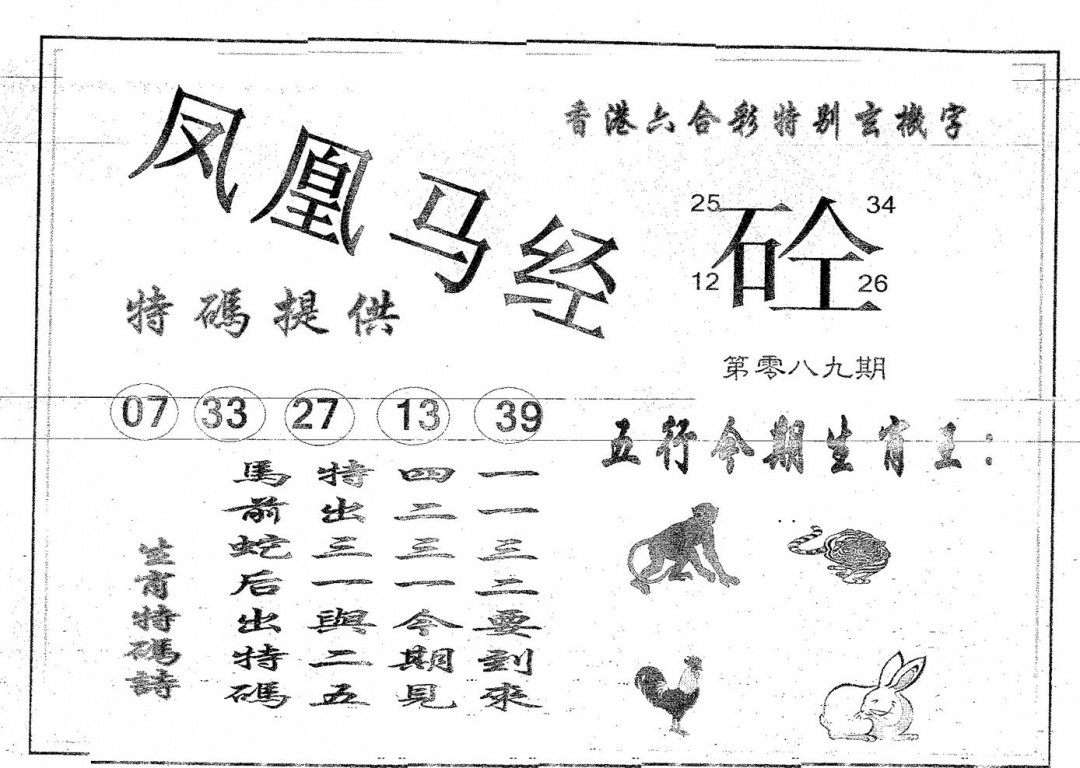 凤凰马经
特碼提供
07 33 27 13 39
生宵特碼詩
一一三二要到來
四二三一今期見
特出三一與二五
馬前蛇后出特碼
香港六合彩特别玄機字
25 34
砼
12 26
第零八九期
五行今期生宵王: